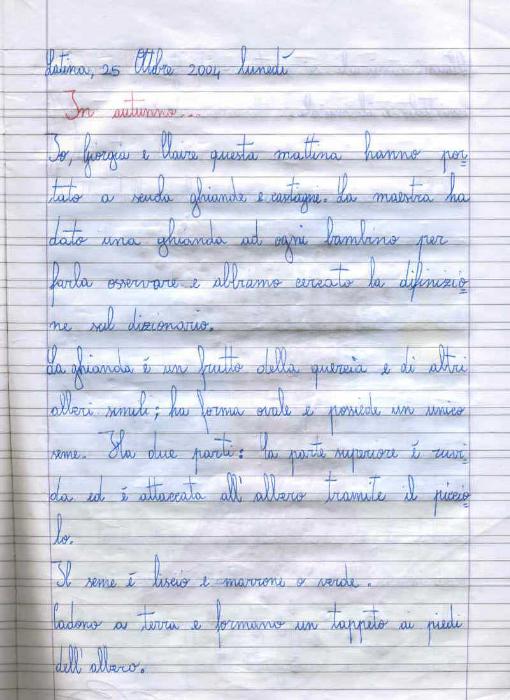 Latina, 25 Ottbre 2004 lunedì
In autunno...
Io, Giorgia e Claire questa mattina hanno por=
tato a scuola ghiande e castagne. La maestra ha
dato una ghianda ad ogni bambino per
farla osservare e abbiamo cercato la difinizio=
ne sul dizionario.
La ghianda è un frutto della quercia e di altri
alberi simili; ha forma ovale e possiede un unico
seme. Ha due parti: la parte superiore è ruvi=
da ed è attaccata all'albero tramite il piccio=
lo.
Il seme è liscio e marrone o verde.
Cadono a terra e formano un tappeto ai piedi
dell'albero.